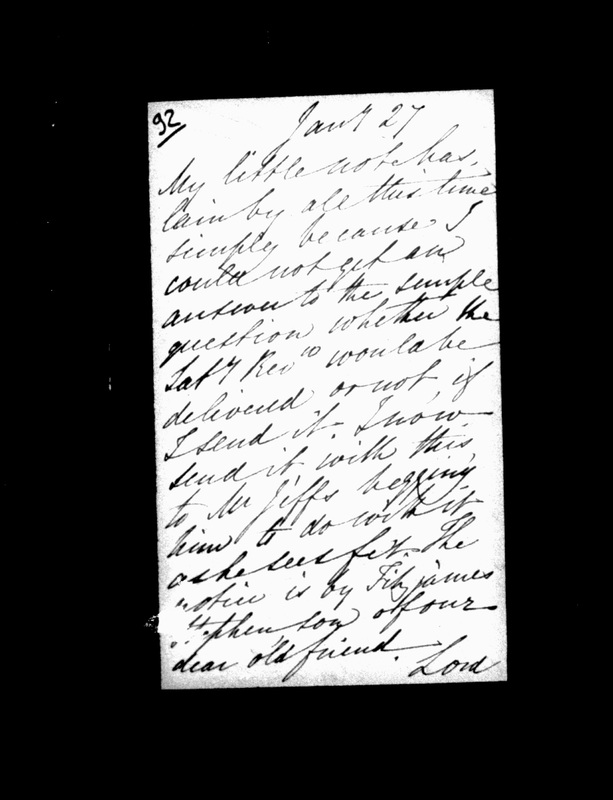 92
Jany 27
My little note has
lain by all this time
simply because I
could not get an
answer to the simple
question whether the
Saty Revw would be
delivered or not, if
I send it. I now
send it with this
to Mr Jiffs begging
him to do with it
as he sees fit. The
notice is by Fitzjames
Stephen son of our
dear old friend. Lord